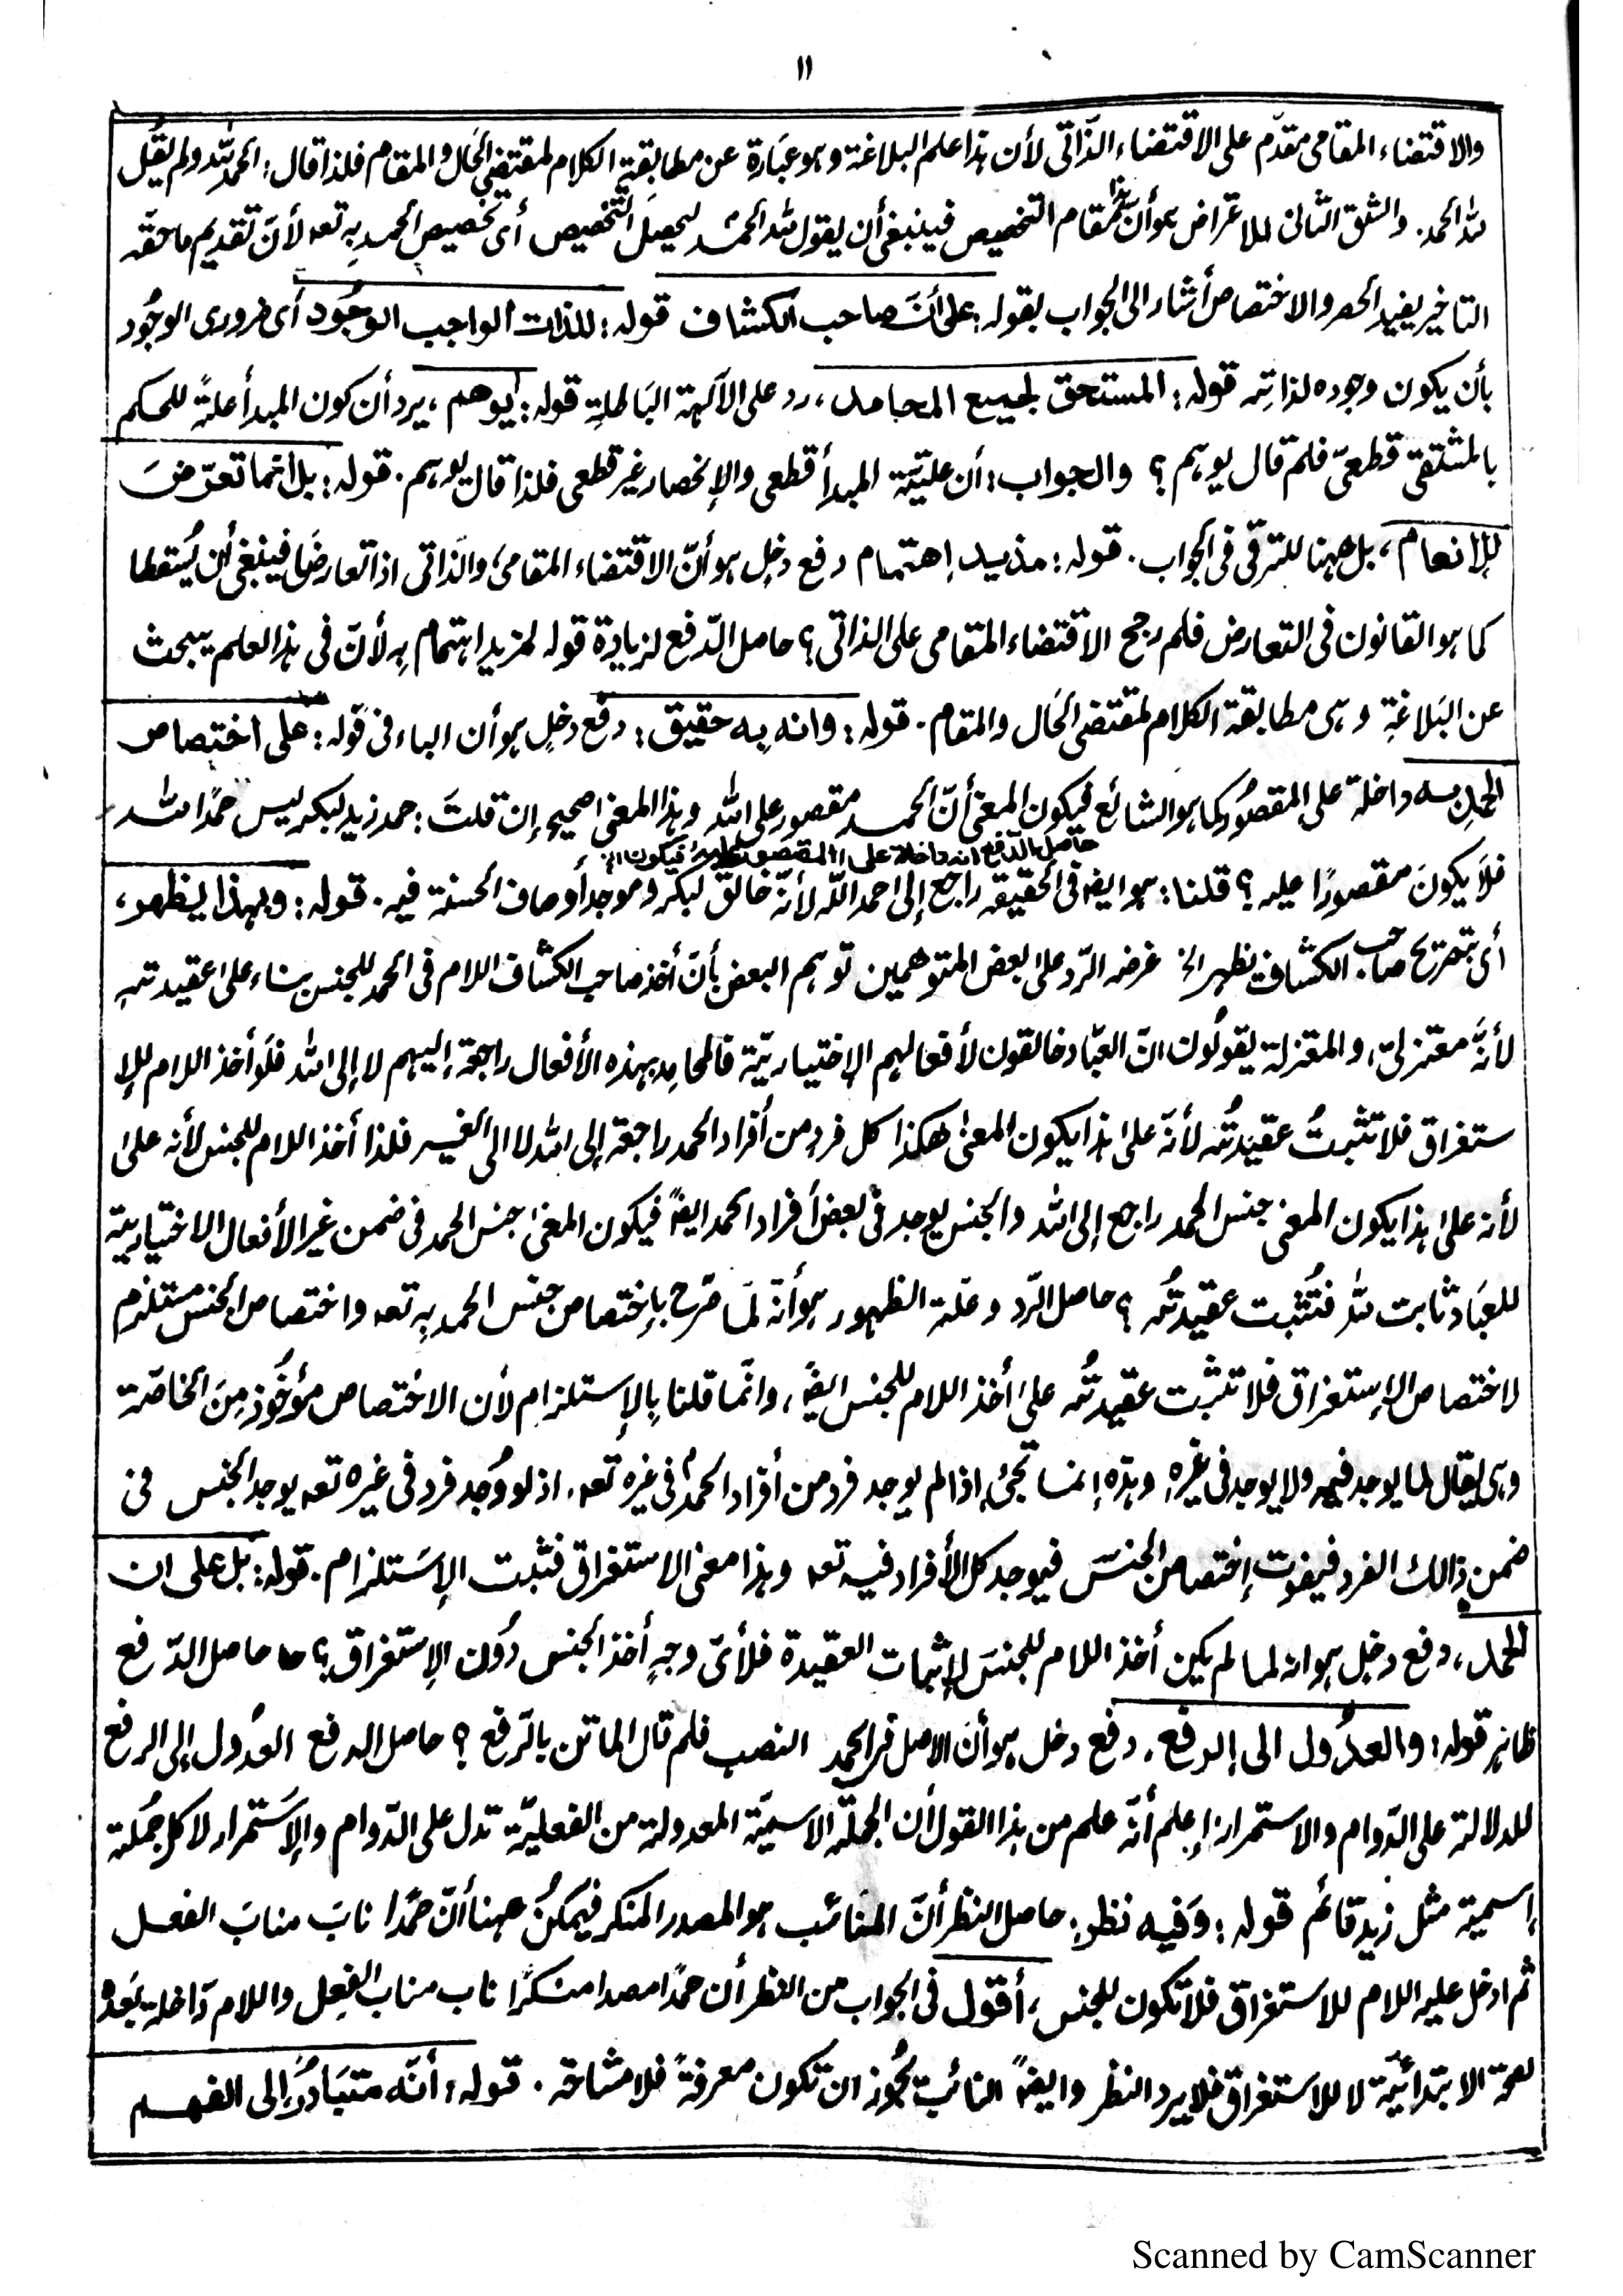 ١١
والاقتضاء المقامى مقدّم على الاقتضاء الذّاتى لأن هذا علم البلاغة وهو عبَارة عن مطابقة الكلام لمقتضى الحَال والمقام فلذا قال: الحمد لله ولم يقُل
لله الحمد. والشق الثانى للاعتراض هو أنّ هذا مقام التخصيص فينبغى أن يقول لله الحمد ليحصل التخصيص أى تخصيص الحمد بهِ تعه لأنّ تقديم ما حقّه
التاخير يفيد الحصر والاختصاص أشار الى الجواب بقوله: على أنَّ صاحب الكشاف قوله: للذات الواجب الوجُود أى ضرورى الوجُود
بأن يكون وجوده لذاتِه قوله: المستحق لجميع المحامد، رد على الآلهة البَاطلةِ قوله: يُوهم، يرد أن كون المبدأ علةً للحكم
بالمشتق قطعىّ فلم قال يوهم؟ والجواب: أن عليّة المبدأ قطعى والإنحصار غير قطعى فلذا قال يوهم. قوله: بل انما تعرّضَ
للإنعام، بل ههنا للترقى فى الجواب. قوله: مزيد إهتمام دفع دخل هو أنّ الاقتضاء المقامى والذّاتى اذا تعارضَا فينبغى أن يُسقطا
كما هو القانون فى التعارض فلم رجح الاقتضاء المقامى على الذاتى؟ حاصل الدّفع لزيادة قوله لمزيد اهتمام به لأنّ فى هذا العلم يبحث
عن البَلاغةِ وهى مطابقة الكلام لمقتضى الحَال والمقام. قوله: وانه به حقيق: دفع دخلٍ هو أن الباء فى قوله: على اختصاص
الحمدِ به داخلة على المقصُور كما هو الشائع فيكون المعنى أنّ الحمد مقصور على الله وهذا المعنى صحيح إن قلتَ: حمد زيد لبكر ليس حمدًا لله
حاصل الدّفع انه داخلة على المقصور عليه فيكون الخ
فلا يكونَ مقصورًا عليه؟ قلنا: هو ايضًا فى الحقيقه راجع إلى احمد اللّه لأنّه خالق لبكر وموجد أوصاف الحسنة فيه. قوله: وبهذا يظهر،
أى بتصريح صاحب الكشاف يظهر الخ غرضه الرّد على بعض المتوهمين توهم البعض بأنّ أخذ صاحب الكشاف اللام فى الحمد للجنس بناء على عقيدته
لأنّه معتزلىّ، والمعتزلة يقولُون انّ العبّاد خالقون لأفعالهم الإختياريّة فالمحامِد بهذه الأفعال راجعة إليهم لا إلى الله فلَو أخذ اللام للإ
ستغراق فلا تثبتُ عقيدتُه لأنّه علىٰ هذا يكون المعنىٰ هكذا كل فردٍ من أفراد الحمد راجعة إلى الله لا الى الغير فلذا أخذ اللام للجنس لأنه علىٰ
لأنه علىٰ هذا يكون المعنى جنس الحمد راجع إلى الله والجنس يوجد فى بعض أفراد الحمد ايضًا فيكون المعنىٰ جنس الحمد فى ضمن غير الأفعال الاختياريّة
للعبَاد ثابت لله فتُثبت عقيدتُه؟ حاصل الرّد وعلّة الظهور هو أنه لمّا صرّح بإختصاص جنس الحمد بِه تعه واختصاص الجنس مستلزم
لاختصاص الإستغراق فلا تثبت عقيدتُه علىٰ أخذ اللام للجنس ايضًا، وانّما قلنا بِالإستلزام لأن الاختصاص مؤخُوذ مِن الخاصّة
وهى يقال لما يوجد فيه ولا يوجد فى غيره وهذه إنما تجئ اذا لم يوجد فرد من أفراد الحمد فى غيره تعه. اذ لو وُجد فرد فى غيره تعه يوجد الجنس فى
ضمن ذالك الفرد فيفوت إختصاص الجنس فيوجد كل الأفراد فيه تعه وهذا معنى الاستغراق فثبت الإستلزام. قوله: بل على ان
الحمد، دفع دخل هو انه لما لم يكن أخذ اللام للجنس لإثبات العقيدة فلأىّ وجهٍ أخذ الجنس دُون الإستغراق؟ حاصل الدّفع
ظاهر قوله: والعدُول الى الرفع. دفع دخل هو أن الاصل فى الحمد النصب فلم قال الماتن بالرّفع؟ حاصل الدفع العُدول إلى الرفع
للدلالة على الدّوام والاستمرار: إعلم أنّه علم من هذا القول أن الجملة الاسميّة المعدولة من الفعليّة تدل على الدّوام والإستمرار لا كل جُملة
إسمية مثل زيد قائم قوله: وَفيه نظر: حاصل النظر أنّ المنَائب هو المصدر المنكر فيمكنُ ههنا أنّ حمدًا نابَ منابَ الفعل
ثم ادخل عليه اللام للاستغراق فلا تكون للجنس، أقول فى الجواب من النظر أن حمدًا مصدا منكرًا ناب مناب الفِعل واللام دَاخلة بَعده
لصحة الابتدائيّة لا للاستغراق فلا يرد النظر وايضًا النائب يجُوز ان تكون معرفةً فلا مشاحة. قوله: أنّه متبَادرُ إلى الفهم
Scanned by CamScanner